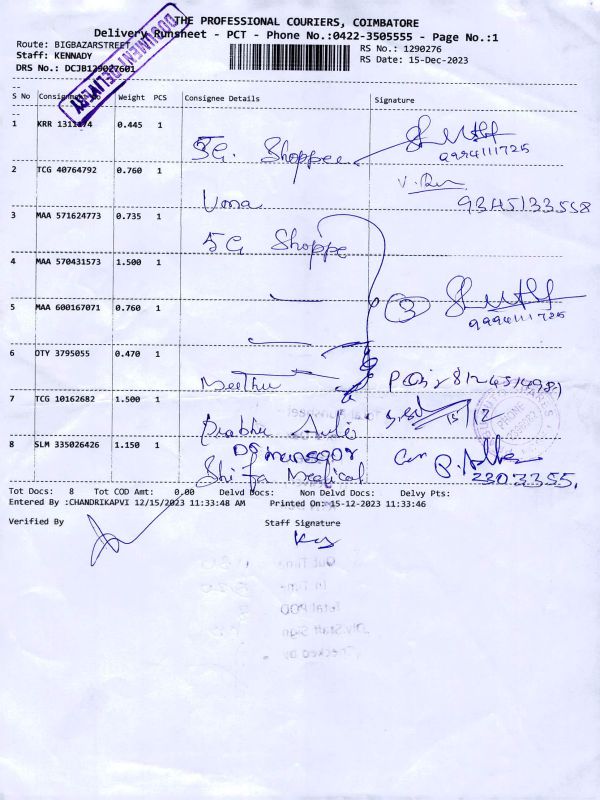 THE PROFESSIONAL COURIERS, COIMBATORE
Delivery Runsheet - PCT - Phone No.:0422-3505555 - Page No.:1
Route: BIGBAZARSTREET
RS No.: 1290276
Staff: KENNADY
RS Date: 15-Dec-2023
DRS No.: DCJB129027601
DOCUMENT DELIVERY
S No Consignment No Weight PCS Consignee Details Signature
1 KRR 0.445 1 5G. Shoppee
9994111725
2 TCG 40764792 0.760 1 Uma
9345133558
3 MAA 571624773 0.735 1 5G Shoppe
4 MAA 570431573 1.500 1
5 MAA 600167071 0.760 1 3
9994111725
6 OTY 3795055 0.470 1 Meethu
7 TCG 10162682 1.500 1 Prabhu Auto 15/12
8 SLM 335026426 1.150 1 Shifa Medical
2303355.
Tot Docs: 8 Tot COD Amt: 0.00 Delvd Docs: Non Delvd Docs: Delvy Pts:
Entered By :CHANDRIKAPVI 12/15/2023 11:33:48 AM Printed On: 15-12-2023 11:33:46
Verified By Staff Signature
Out Time
In Time
Total POD
Dlv.Staff Sign
Checked by